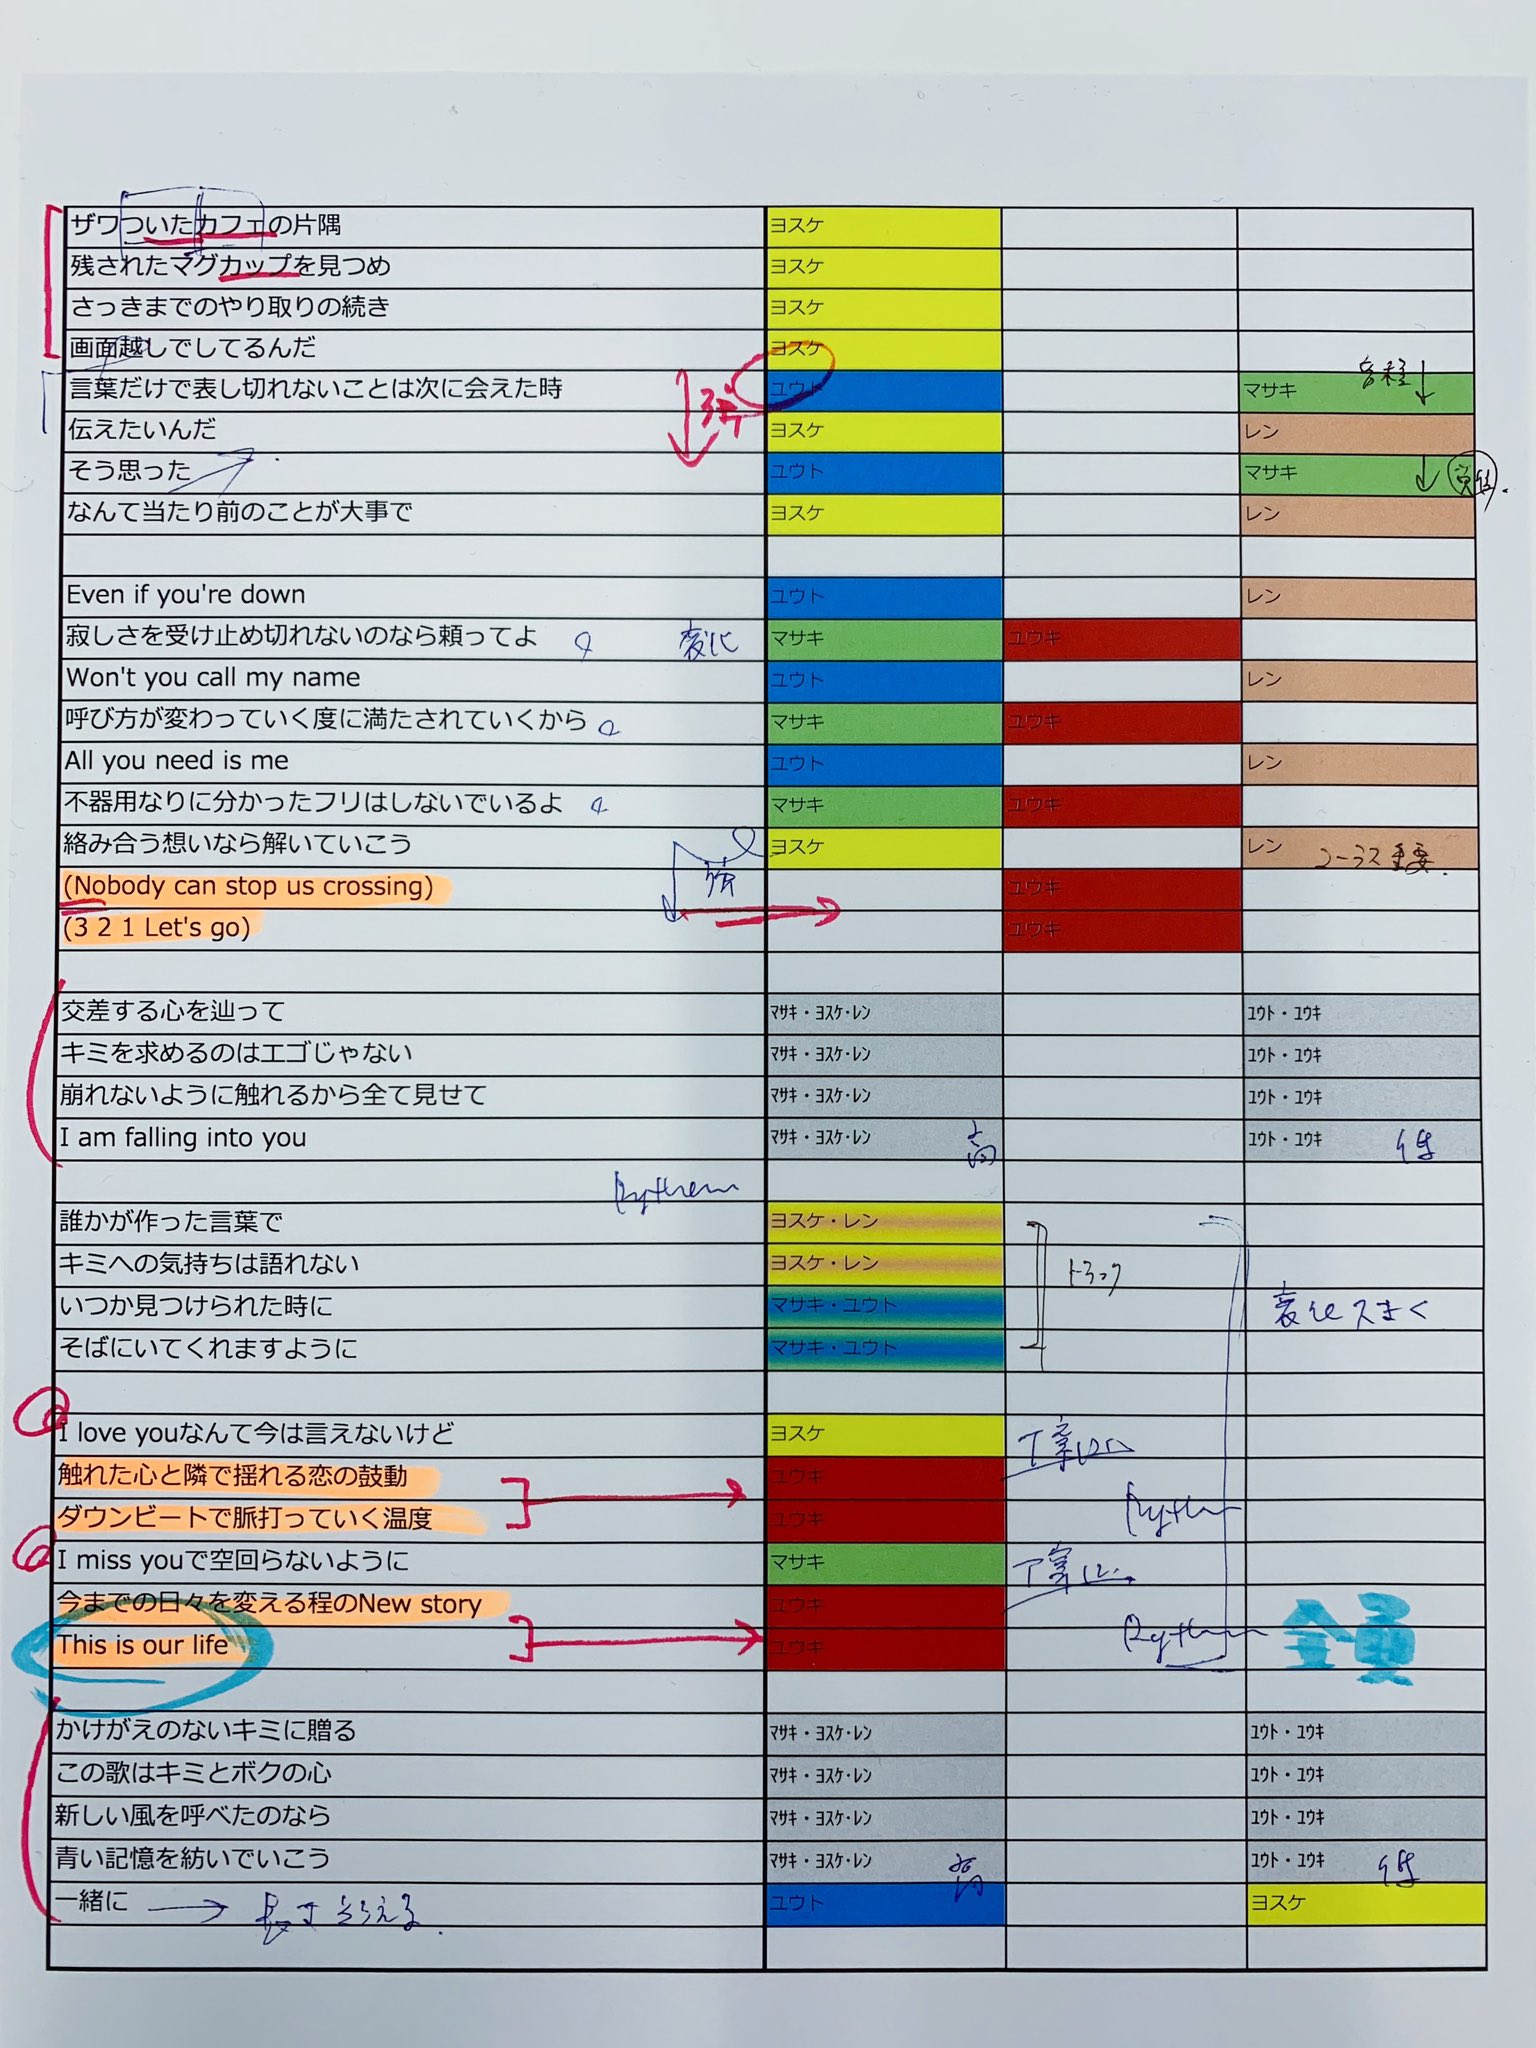 ザワついたカフェの片隅 ヨスケ
残されたマグカップを見つめ ヨスケ
さっきまでのやり取りの続き ヨスケ
画面越しでしてるんだ ヨスケ
言葉だけで表し切れないことは次に会えた時 ユウト マサキ
伝えたいんだ ヨスケ レン
そう思った ユウト マサキ
なんて当たり前のことが大事で ヨスケ レン
Even if you're down ユウト レン
寂しさを受け止め切れないのなら頼ってよ 変化 マサキ ユウキ
Won't you call my name ユウト レン
呼び方が変わっていく度に満たされていくから マサキ ユウキ
All you need is me ユウト レン
不器用なりに分かったフリはしないでいるよ マサキ ユウキ
絡み合う想いなら解いていこう ヨスケ レン コーラス重要
(Nobody can stop us crossing) 強 ユウキ
(3 2 1 Let's go) ユウキ
交差する心を辿って マサキ・ヨスケ・レン ユウト・ユウキ
キミを求めるのはエゴじゃない マサキ・ヨスケ・レン ユウト・ユウキ
崩れないように触れるから全て見せて マサキ・ヨスケ・レン ユウト・ユウキ
I am falling into you マサキ・ヨスケ・レン 高 ユウト・ユウキ 低
Rythem
誰かが作った言葉で ヨスケ・レン
キミへの気持ちは語れない ヨスケ・レン トラック
いつか見つけられた時に マサキ・ユウト 変化大きく
そばにいてくれますように マサキ・ユウト
I love youなんて今は言えないけど ヨスケ 丁寧に
触れた心と隣で揺れる恋の鼓動 ユウキ
ダウンビートで脈打っていく温度 ユウキ Rythem
I miss youで空回らないように マサキ 丁寧に
今までの日々を変える程のNew story ユウキ
This is our life ユウキ Rythem 全員
かけがえのないキミに贈る マサキ・ヨスケ・レン ユウト・ユウキ
この歌はキミとボクの心 マサキ・ヨスケ・レン ユウト・ユウキ
新しい風を呼べたのなら マサキ・ヨスケ・レン ユウト・ユウキ
青い記憶を紡いでいこう マサキ・ヨスケ・レン 高 ユウト・ユウキ 低
一緒に → 長さそろえる ユウト ヨスケ